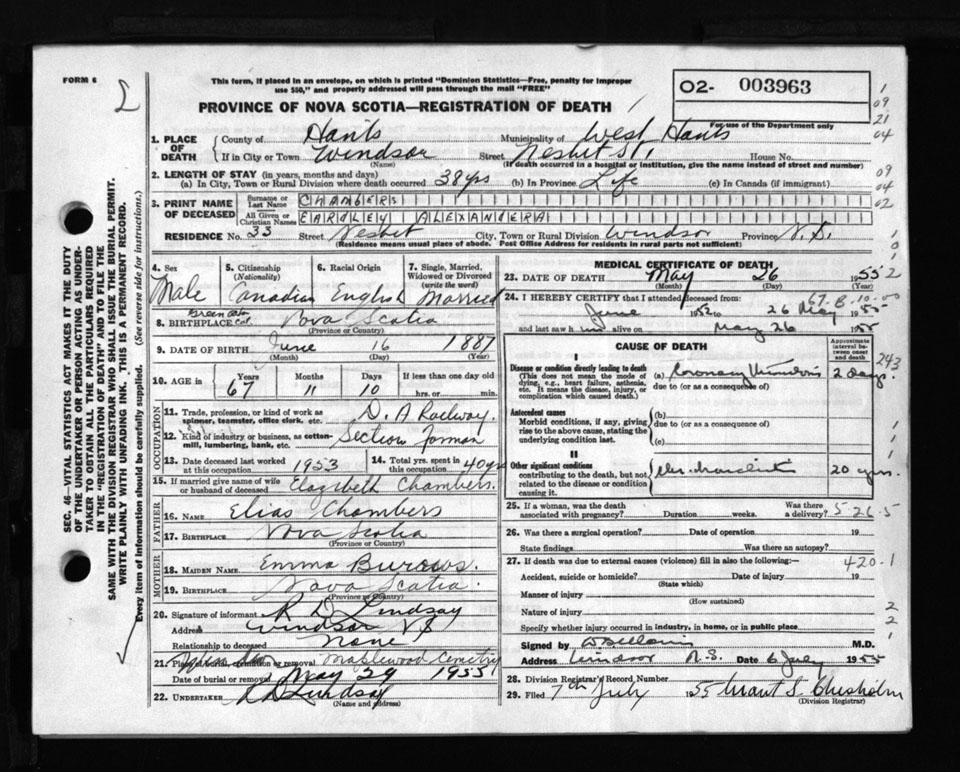 FORM 6
This form, if placed in an envelope, on which is printed "Dominion Statistics—Free, penalty for improper
use $50," and properly addressed will pass through the mail "FREE"
PROVINCE OF NOVA SCOTIA—REGISTRATION OF DEATH
O2- 003963
For use of the Department only
1
09
21
04
09
04
02
1. PLACE OF DEATH
County of Hants Municipality of West Hants
If in City or Town Windsor Street Nesbit St. House No.
(Name) (If death occurred in a hospital or institution, give the name instead of street and number)
2. LENGTH OF STAY (in years, months and days)
(a) In City, Town or Rural Division where death occurred 38 yrs (b) In Province Life (c) In Canada (if immigrant)
3. PRINT NAME OF DECEASED
Surname or Last Name CHAMBERS
All Given or Christian Names EARDLEY ALEXANDER
RESIDENCE No. 33 Street Nesbit City, Town or Rural Division Windsor Province N.S.
(Residence means usual place of abode. Post Office Address for residents in rural parts not sufficient)
4. Sex Male
5. Citizenship (Nationality) Canadian
6. Racial Origin English
7. Single, Married, Widowed or Divorced (write the word) Married
8. BIRTHPLACE Nova Scotia
(Province or Country)
9. DATE OF BIRTH June 16 1887
(Month) (Day) (Year)
10. AGE in Years 67 Months 11 Days 10 If less than one day old
hrs. or min.
OCCUPATION
11. Trade, profession, or kind of work as spinner, teamster, office clerk, etc. D. A Railway.
12. Kind of industry or business, as cotton-mill, lumbering, bank, etc. Section forman
13. Date deceased last worked at this occupation 1953
14. Total yrs. spent in this occupation 40 yrs
15. If married give name of wife or husband of deceased Elazibeth Chambers.
FATHER
16. NAME Elias Chambers
17. BIRTHPLACE Nova Scotia
(Province or Country)
MOTHER
18. MAIDEN NAME Emma Burows.
19. BIRTHPLACE Nova Scotia.
(Province or Country)
20. Signature of informant R D Lindsay
Address Windsor N S
Relationship to deceased None
21. Place of burial, cremation or removal Maplewood Cemetry
Date of burial or removal May 29 1955
22. UNDERTAKER R D Lindsay
(Name and address)
MEDICAL CERTIFICATE OF DEATH
23. DATE OF DEATH May 26 1955
(Month) (Day)
24. I HEREBY CERTIFY that I attended deceased from:
June 1952 to 26 May 1955
and last saw him alive on May 26 1955
67-8-10-00
CAUSE OF DEATH
Approximate interval between onset and death
243
I
Disease or condition directly leading to death
(This does not mean the mode of dying, e.g., heart failure, asthenia, etc. It means the disease, injury, or complication which caused death.)
(a) Coronary Thrombosis 2 days.
due to (or as a consequence of)
Antecedent causes
Morbid conditions, if any, giving rise to the above cause, stating the underlying condition last.
(b)
due to (or as a consequence of)
(c)
II
Other significant conditions
contributing to the death, but not related to the disease or condition causing it.
20 yrs.
25. If a woman, was the death associated with pregnancy? Duration weeks. Was there a delivery?
5-26-5
26. Was there a surgical operation? Date of operation 19
State findings Was there an autopsy?
27. If death was due to external causes (violence) fill in also the following:—
420-1
Accident, suicide or homicide? Date of injury 19
(State which)
Manner of injury
(How sustained)
Nature of injury
Specify whether injury occurred in industry, in home, or in public place
Signed by M.D.
Address Windsor N.S. Date 6 July 1955
28. Division Registrar's Record Number
29. Filed 7th July 1955 Grant S. Chisholm
(Division Registrar)
SEC. 46—VITAL STATISTICS ACT MAKES IT THE DUTY
OF THE UNDERTAKER OR PERSON ACTING AS UNDER-
TAKER TO OBTAIN ALL THE PARTICULARS REQUIRED
IN THE "REGISTRATION OF DEATH" AND TO FILE THE
SAME WITH THE DIVISION REGISTRAR WHO SHALL ISSUE THE BURIAL PERMIT.
WRITE PLAINLY WITH UNFADING INK. THIS IS A PERMANENT RECORD.
Every item of Information should be carefully supplied. (See reverse side for instructions.)